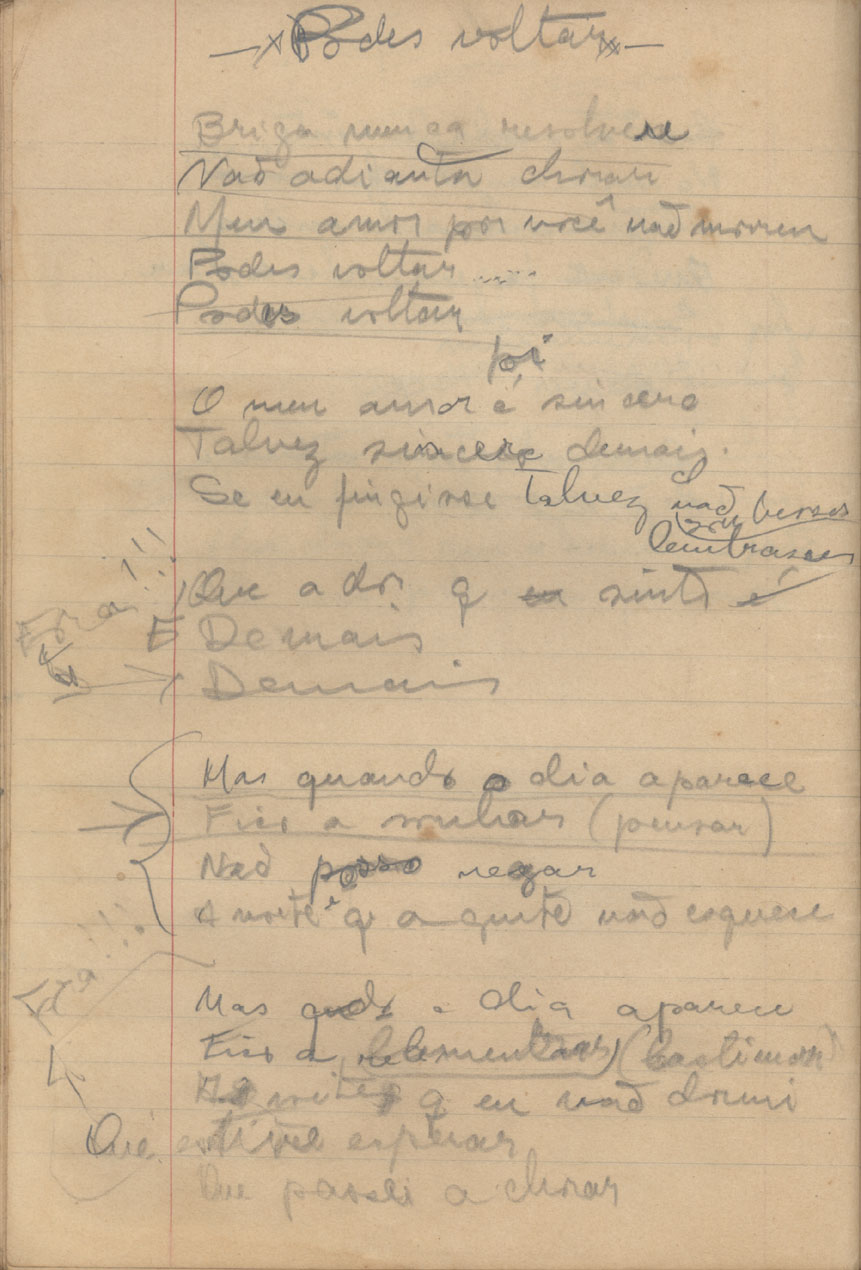 Podes voltar
Briga nunca resolveu
Não adianta chorar
Meu amor por você não morreu
Podes voltar .....
Podes voltar
O meu amor é sincero
Talvez sincero demais.
Se eu fingisse talvez não
lembrasses
Que a dor q eu sinto é
E Demais
Demais
Mas quando o dia aparece
Fico a sonhar (pensar)
Não posso negar
A noite é q a gente não esquece
Mas qdo o dia aparece
Fico a (lastimar)
As noites q eu não dormi
Que estive esperar
Que passei a chorar